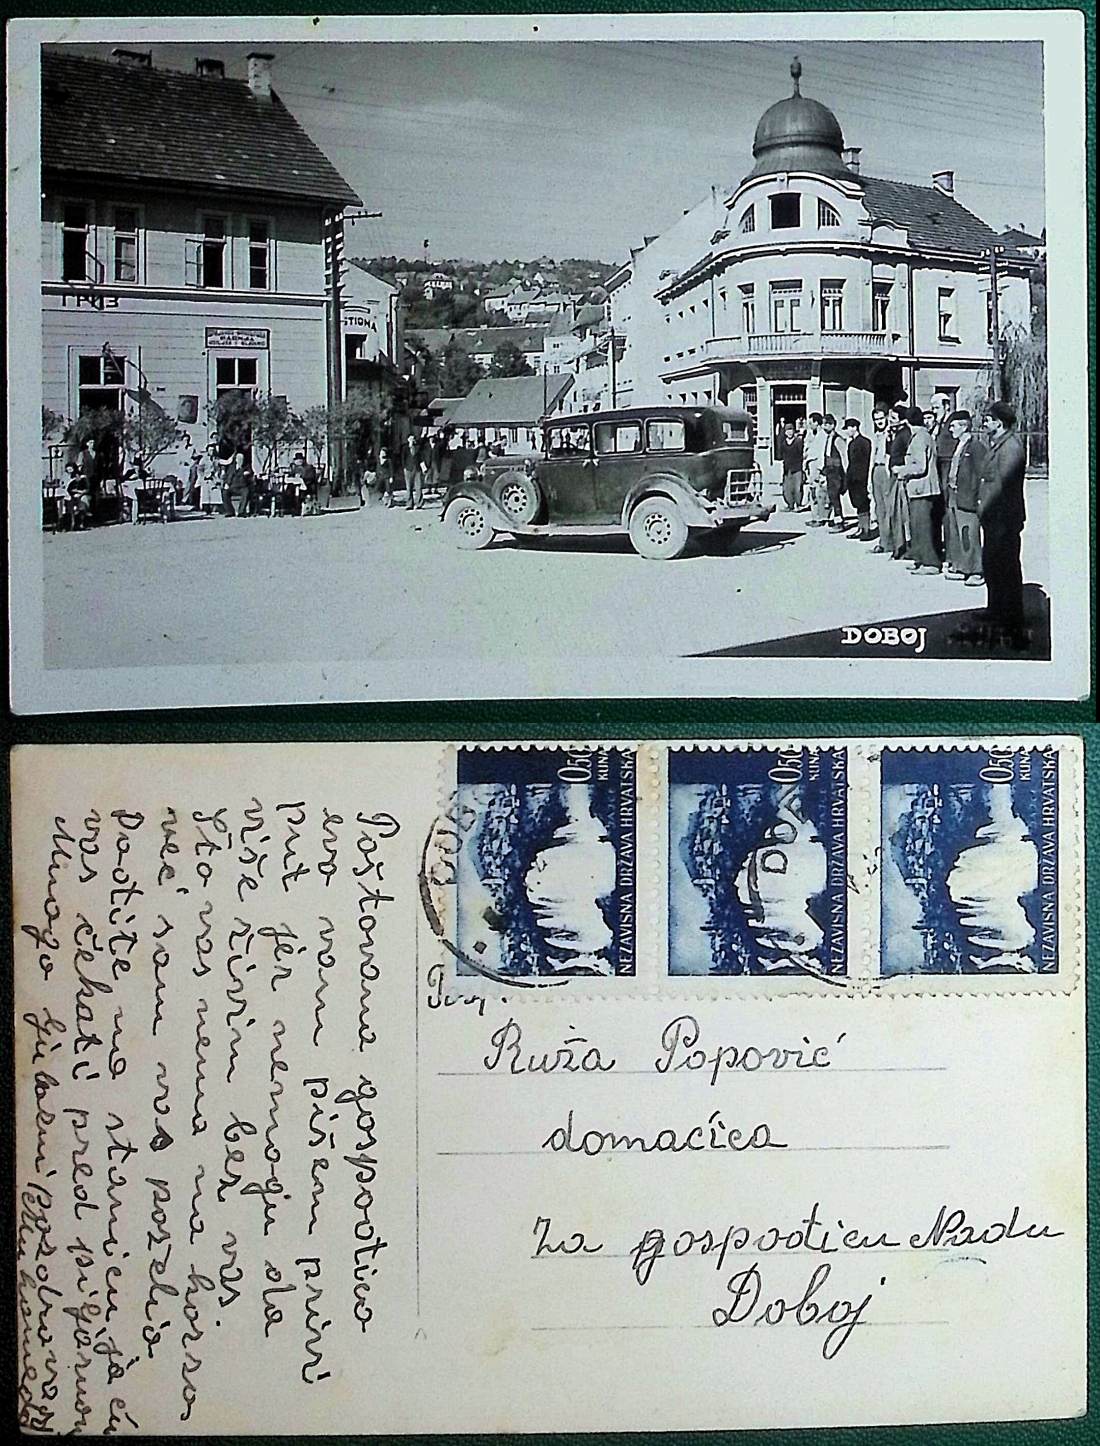 ГРИЗ
STIONA
DOBOJ
Poštovana gospođica
evo vam pišem prvi
put jer nemogu da
više živim bez vas.
Što vas nema na korso
već sam vas poželio
Dođite na stanicu ja ću
vas čekati pred piljarnom
Mnogo ljubavni pozdrav vaš
0,50 KUNA
NEZAVISNA DRŽAVA HRVATSKA
0,50 KUNA
NEZAVISNA DRŽAVA HRVATSKA
0,50 KUNA
NEZAVISNA DRŽAVA HRVATSKA
Ruža Popović
domaćica
Za gospođicu Nadu
Doboj